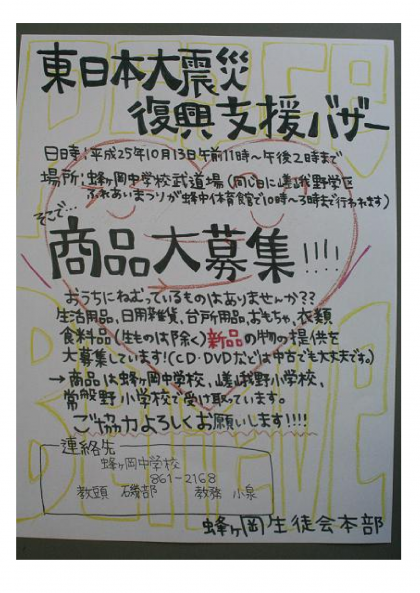 東日本大震災
復興支援バザー
日時:平成25年10月13日午前11時~午後2時まで
場所:蜂ヶ岡中学校武道場(同日に嵯峨野学区
ふれあいまつりが蜂中体育館で10時~3時まで行われます)
そこで…
商品大募集!!!!
おうちにねむっているものはありませんか??
生活用品、日用雑貨、台所用品、おもちゃ、衣類
食料品(生ものは除く)新品の物の提供を
大募集しています!(CD・DVDなどは中古でも大丈夫です。)
→商品は蜂ヶ岡中学校、嵯峨野小学校、
常盤野小学校で受け取っています。
ご協力よろしくお願いします!!!!
連絡先
蜂ヶ岡中学校
861-2168
教頭 磯部 教務 小泉
蜂ヶ岡生徒会本部
PEACE
BELIEVE